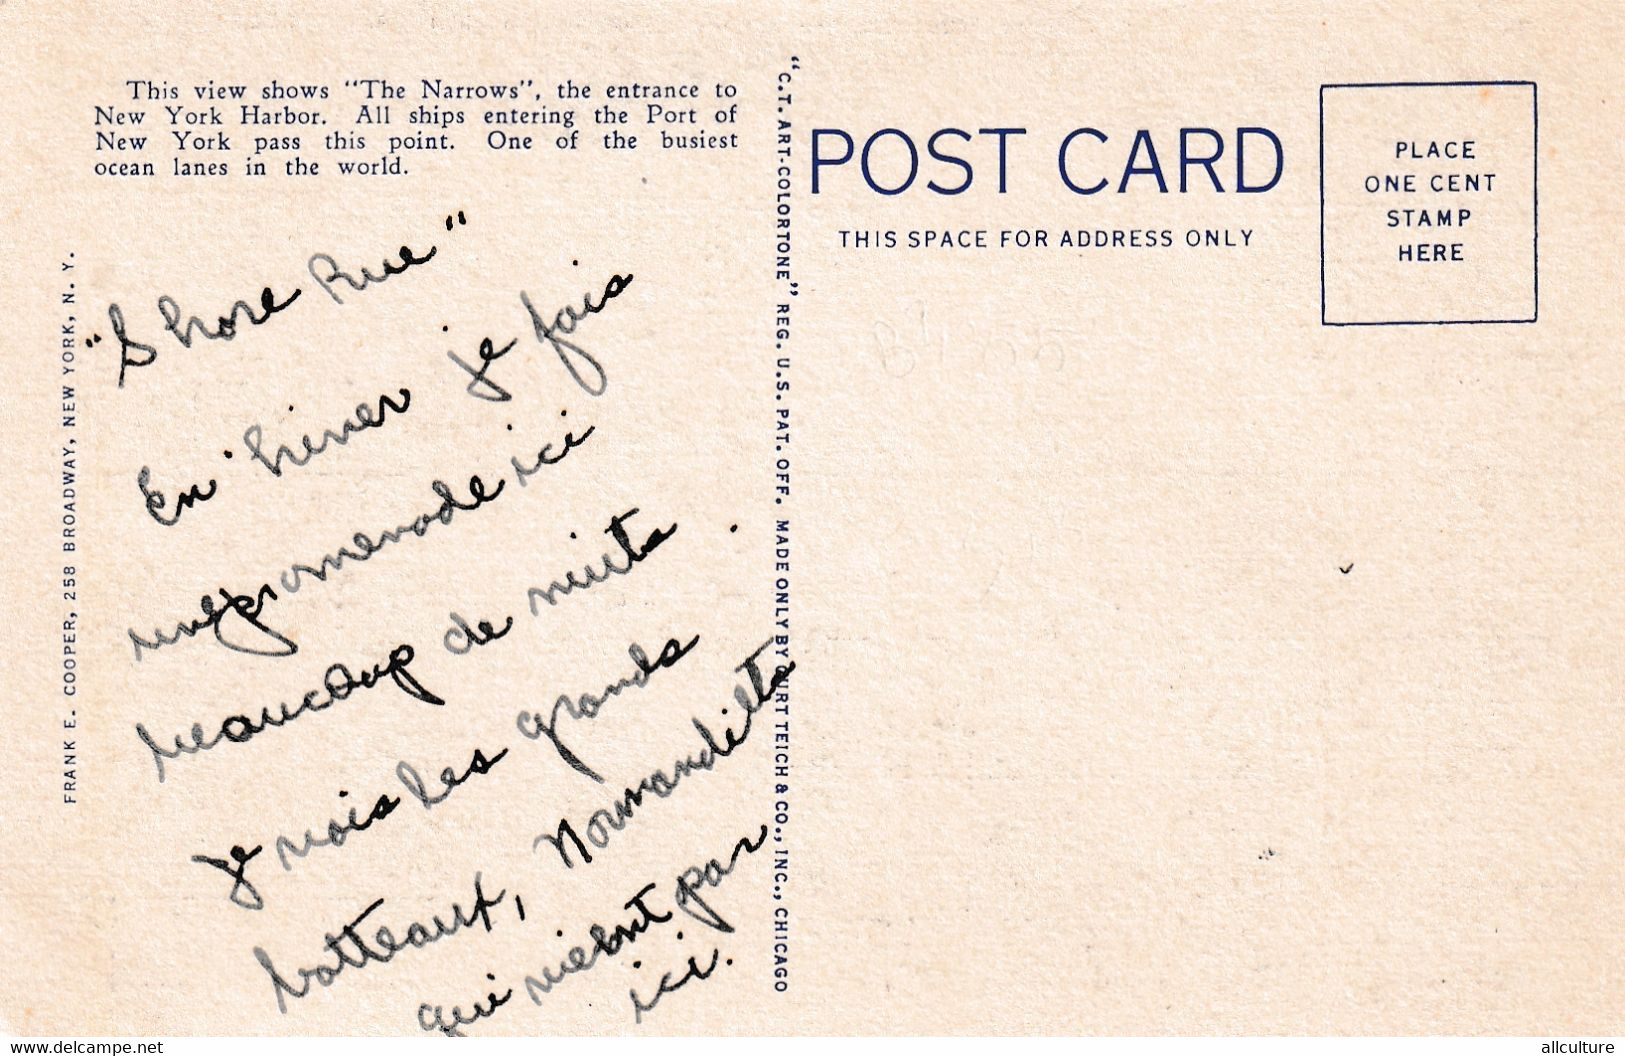 This view shows "The Narrows", the entrance to
New York Harbor. All ships entering the Port of
New York pass this point. One of the busiest
ocean lanes in the world.
"Shore Rue"
En hiver je fais
une promenade ici
beaucoup de nuits.
je vois les grands
batteaux,
qui vient par
ici.
FRANK E. COOPER, 258 BROADWAY, NEW YORK, N. Y.
"C.T. ART-COLORTONE" REG. U.S. PAT. OFF. MADE ONLY BY CURT TEICH & CO., INC., CHICAGO
POST CARD
THIS SPACE FOR ADDRESS ONLY
PLACE
ONE CENT
STAMP
HERE
www.delcampe.net
allculture